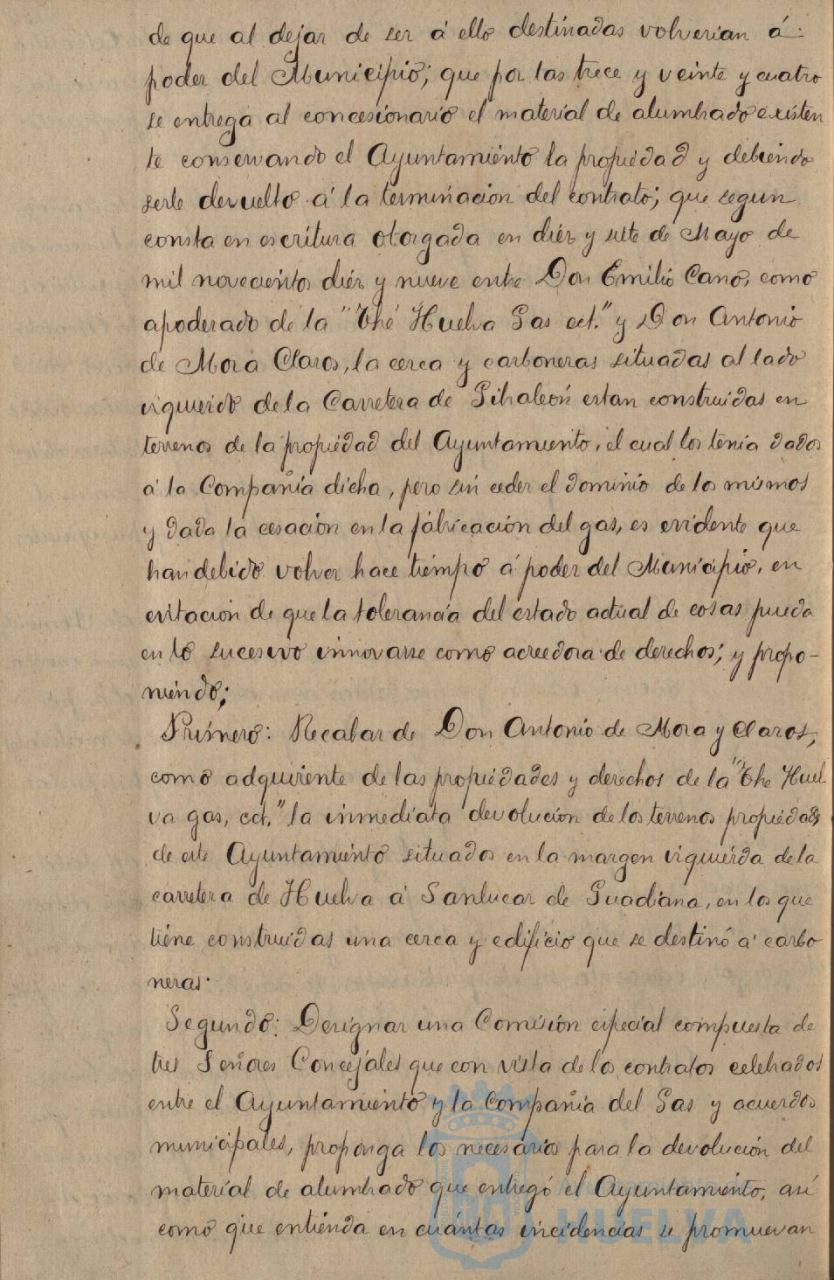 de que al dejar de ser á ello destinadas volverian á
poder del Municipio; que por las trece y veinte y cuatro
se entrega al concesionario el material de alumbrado existen
te conservando el Ayuntamiento la propiedad y debiendo
serle devuelto á la terminación del contrato; que segun
consta en escritura otorgada en diéz y siete de Mayo de
mil novecientos diéz y nueve entre Don Emilio Cano, como
apoderado de la "Thé Huelva Gas cct." y Don Antonio
de Mora Claros, la cerca y carboneras situadas al lado
izquierdo de la Carretera de Gibraleón estan construidas en
terrenos de la propiedad del Ayuntamiento, el cual los tenia dados
á la Compañía dicha, pero sin ceder el dominio de los mismos
y dada la cesación en la fabricación del gas, es evidente que
han debido volver hace tiempo á poder del Municipio, en
evitación de que la tolerancia del estado actual de cosas pueda
en lo sucesivo innovarse como acreedora de derechos; y propo-
niendo;
Primero: Recabar de Don Antonio de Mora y Claros,
como adquirente de las propiedades y derechos de la "The Huel
va gas, cct." la inmediata devolución de los terrenos propiedad
de este Ayuntamiento situados en la margen izquierda de la
carretera de Huelva á Sanlucar de Guadiana, en los que
tiene construidas una cerca y edificio que se destinó á carbo
neras.
Segundo: Designar una Comisión especial compuesta de
tres Señores Concejales que con vista de los contratos celebrados
entre el Ayuntamiento y la Compañía del Gas y acuerdos
municipales, proponga los necesarios para la devolución del
material de alumbrado que entregó el Ayuntamiento, así
como que entienda en cuántas incidencias se promuevan
HUELVA